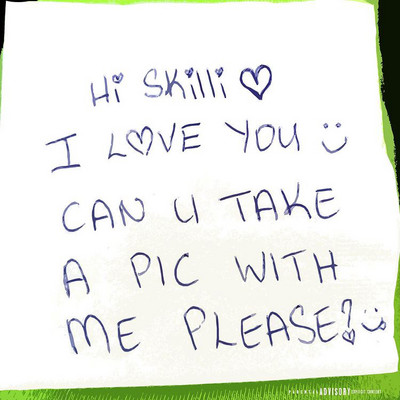 Hi Skilli ♡
I L♡VE YOU :)
CAN U TAKE
A PIC WITH
ME PLEASE? :)
PARENTAL ADVISORY EXPLICIT CONTENT